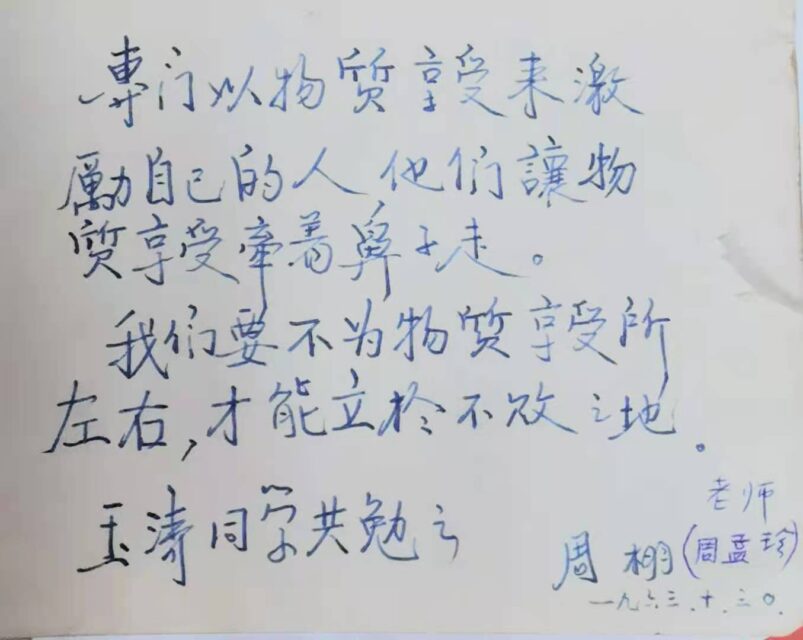 專门以物質享受来激
勵自己的人他们讓物
質享受牽着鼻子走。
我们要不为物質享受所
左右,才能立於不败之地。
玉涛同学共勉之
老师
周棚(周孟珍)
一九六三.十.三〇.